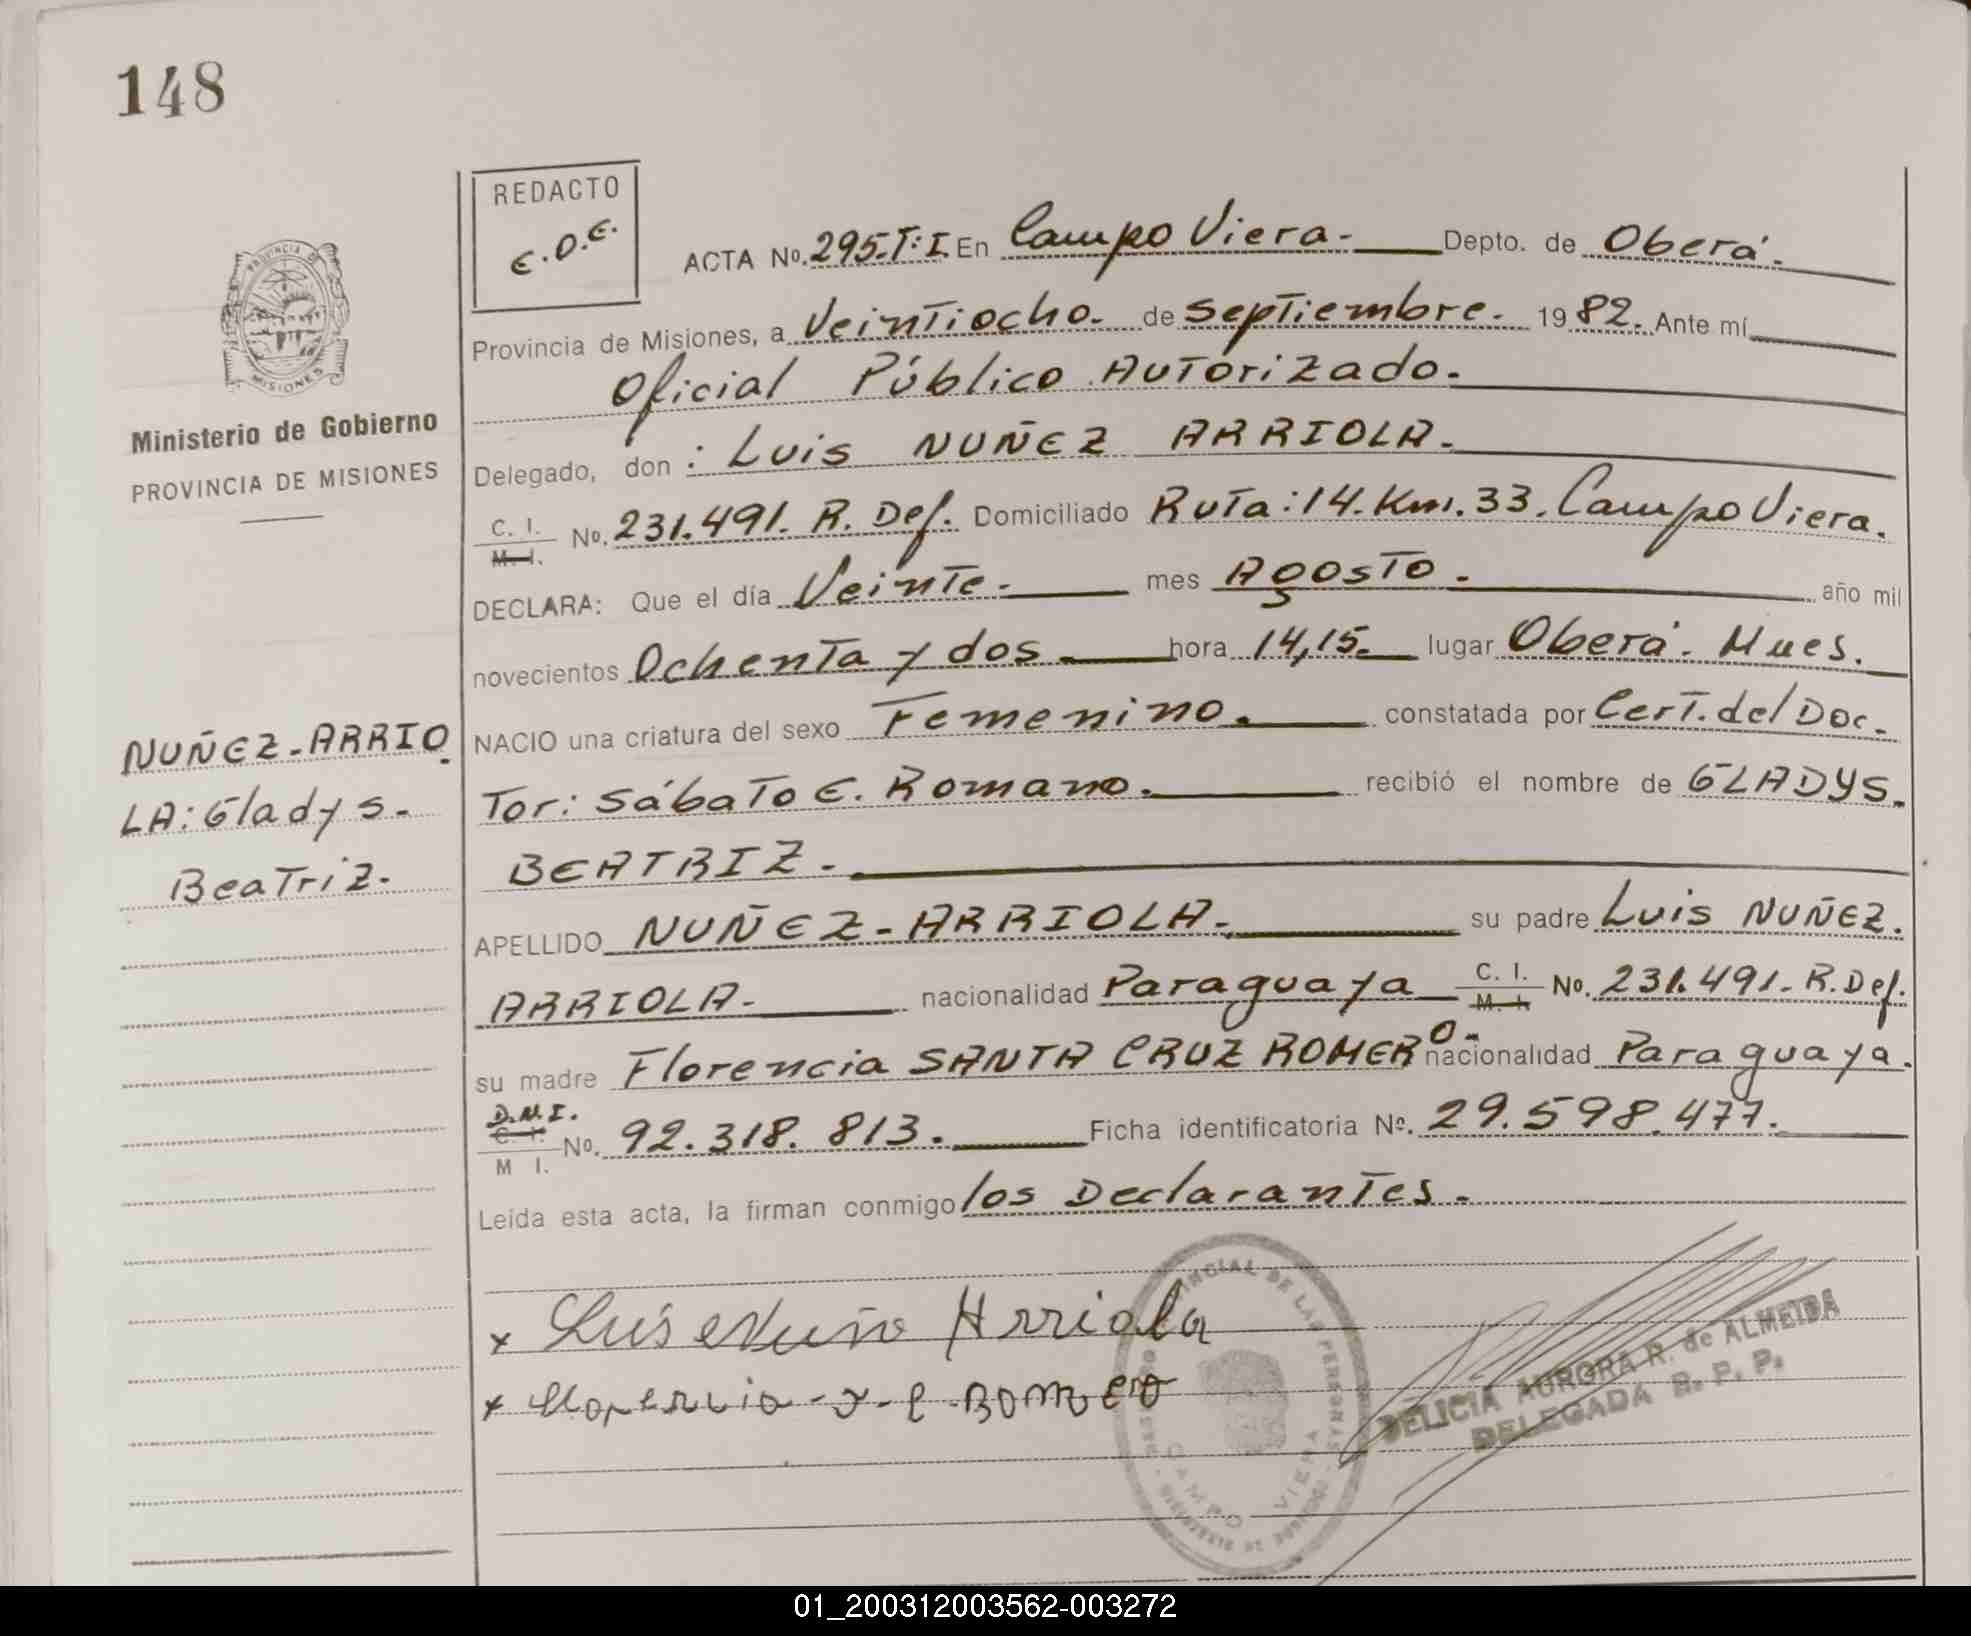 148
REDACTO
E.O.E.
PROVINCIA DE
MISIONES
Ministerio de Gobierno
PROVINCIA DE MISIONES
ACTA No. 295-T:I. En Campo Viera.- Depto. de Oberá.
Provincia de Misiones, a Veintiocho. de septiembre. 1982. Ante mí
Oficial Público Autorizado.
Delegado, don : Luis NUÑEZ ARRIOLA.
C. I.
M. I. No. 231.491. R. Def. Domiciliado Ruta:14. Km. 33. Campo Viera.
DECLARA: Que el día Veinte.- mes Agosto. año mil
novecientos Ochenta y dos hora 14,15. lugar Oberá. Mnes.
NACIO una criatura del sexo Femenino. constatada por Cert. del Doc_
Tor: Sábato E. Romano. recibió el nombre de GLADYS.
BEATRIZ.
APELLIDO NUÑEZ-ARRIOLA. su padre Luis NUÑEZ.
ARRIOLA.- nacionalidad Paraguaya C. I. M. I. No. 231.491. R. Def.
su madre Florencia SANTA CRUZ ROMERO. nacionalidad Paraguaya.
D.N.I.
C. I.
M I. No. 92.318.813. Ficha identificatoria No. 29.598.477.
Leída esta acta, la firman conmigo los Declarantes.-
NUÑEZ-ARRIO
LA: Gladys.
Beatriz.
x Luis Nuñe Arriola
x Florencia - - C - Romero
DELICIA AURORA R. de ALMEIDA
DELEGADA R. P. P.
PROVINCIAL DE LAS PERSONAS
CAMPO VIERA
01_200312003562-003272